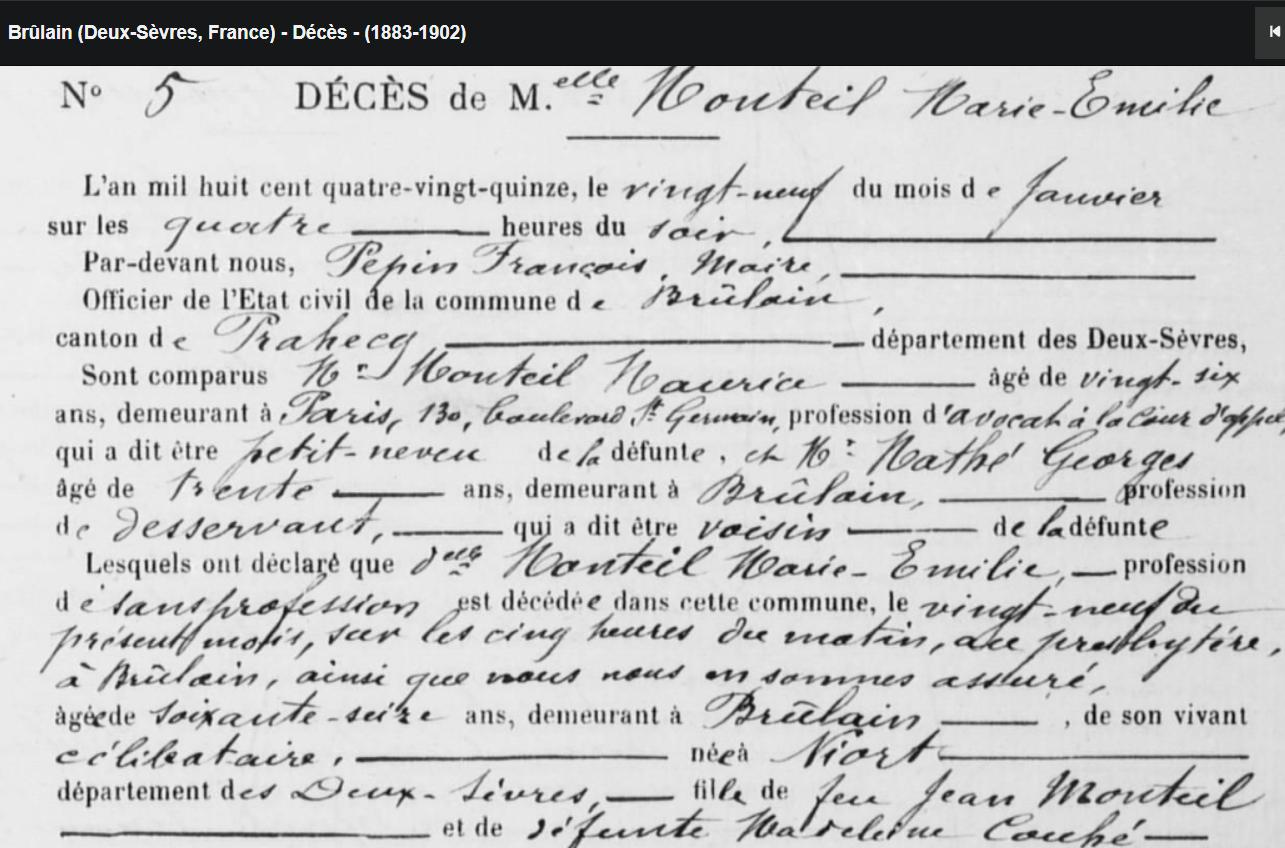 Brûlain (Deux-Sèvres, France) - Décès - (1883-1902)
N° 5 DÉCÈS de M.elle Monteil Marie-Emilie
L'an mil huit cent quatre-vingt-quinze, le vingt-neuf du mois de Janvier
sur les quatre heures du soir,
Par-devant nous, Pépin François, Maire,
Officier de l'Etat civil de la commune de Brûlain,
canton de Prahecq département des Deux-Sèvres,
Sont comparus Mr Monteil Maurice âgé de vingt-six
ans, demeurant à Paris, 130, boulevard St Germain, profession d'avocat à la Cour d'appel,
qui a dit être petit-neveu de la défunte, et Mr Mathé Georges
âgé de trente ans, demeurant à Brûlain, profession
de desservant, qui a dit être voisin de la défunte
Lesquels ont déclaré que delle Monteil Marie-Emilie, profession
de sans profession est décédée dans cette commune, le vingt-neuf du
présent mois, sur les cinq heures du matin, au presbytère,
à Brûlain, ainsi que nous nous en sommes assuré,
âgée de soixante-seize ans, demeurant à Brûlain, de son vivant
célibataire, née à Niort
département des Deux-Sèvres, fille de feu Jean Monteil
et de défunte Madeleine Coupé